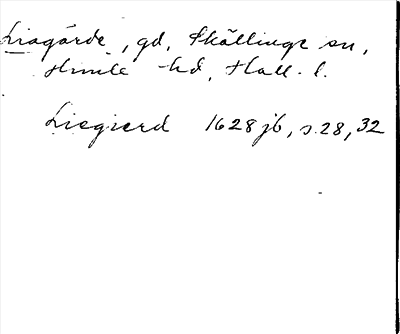 Liagärde, gd, Skällinge sn,
Himle hd, Hall. l.
Liegierd 1628 jb, s. 28, 32